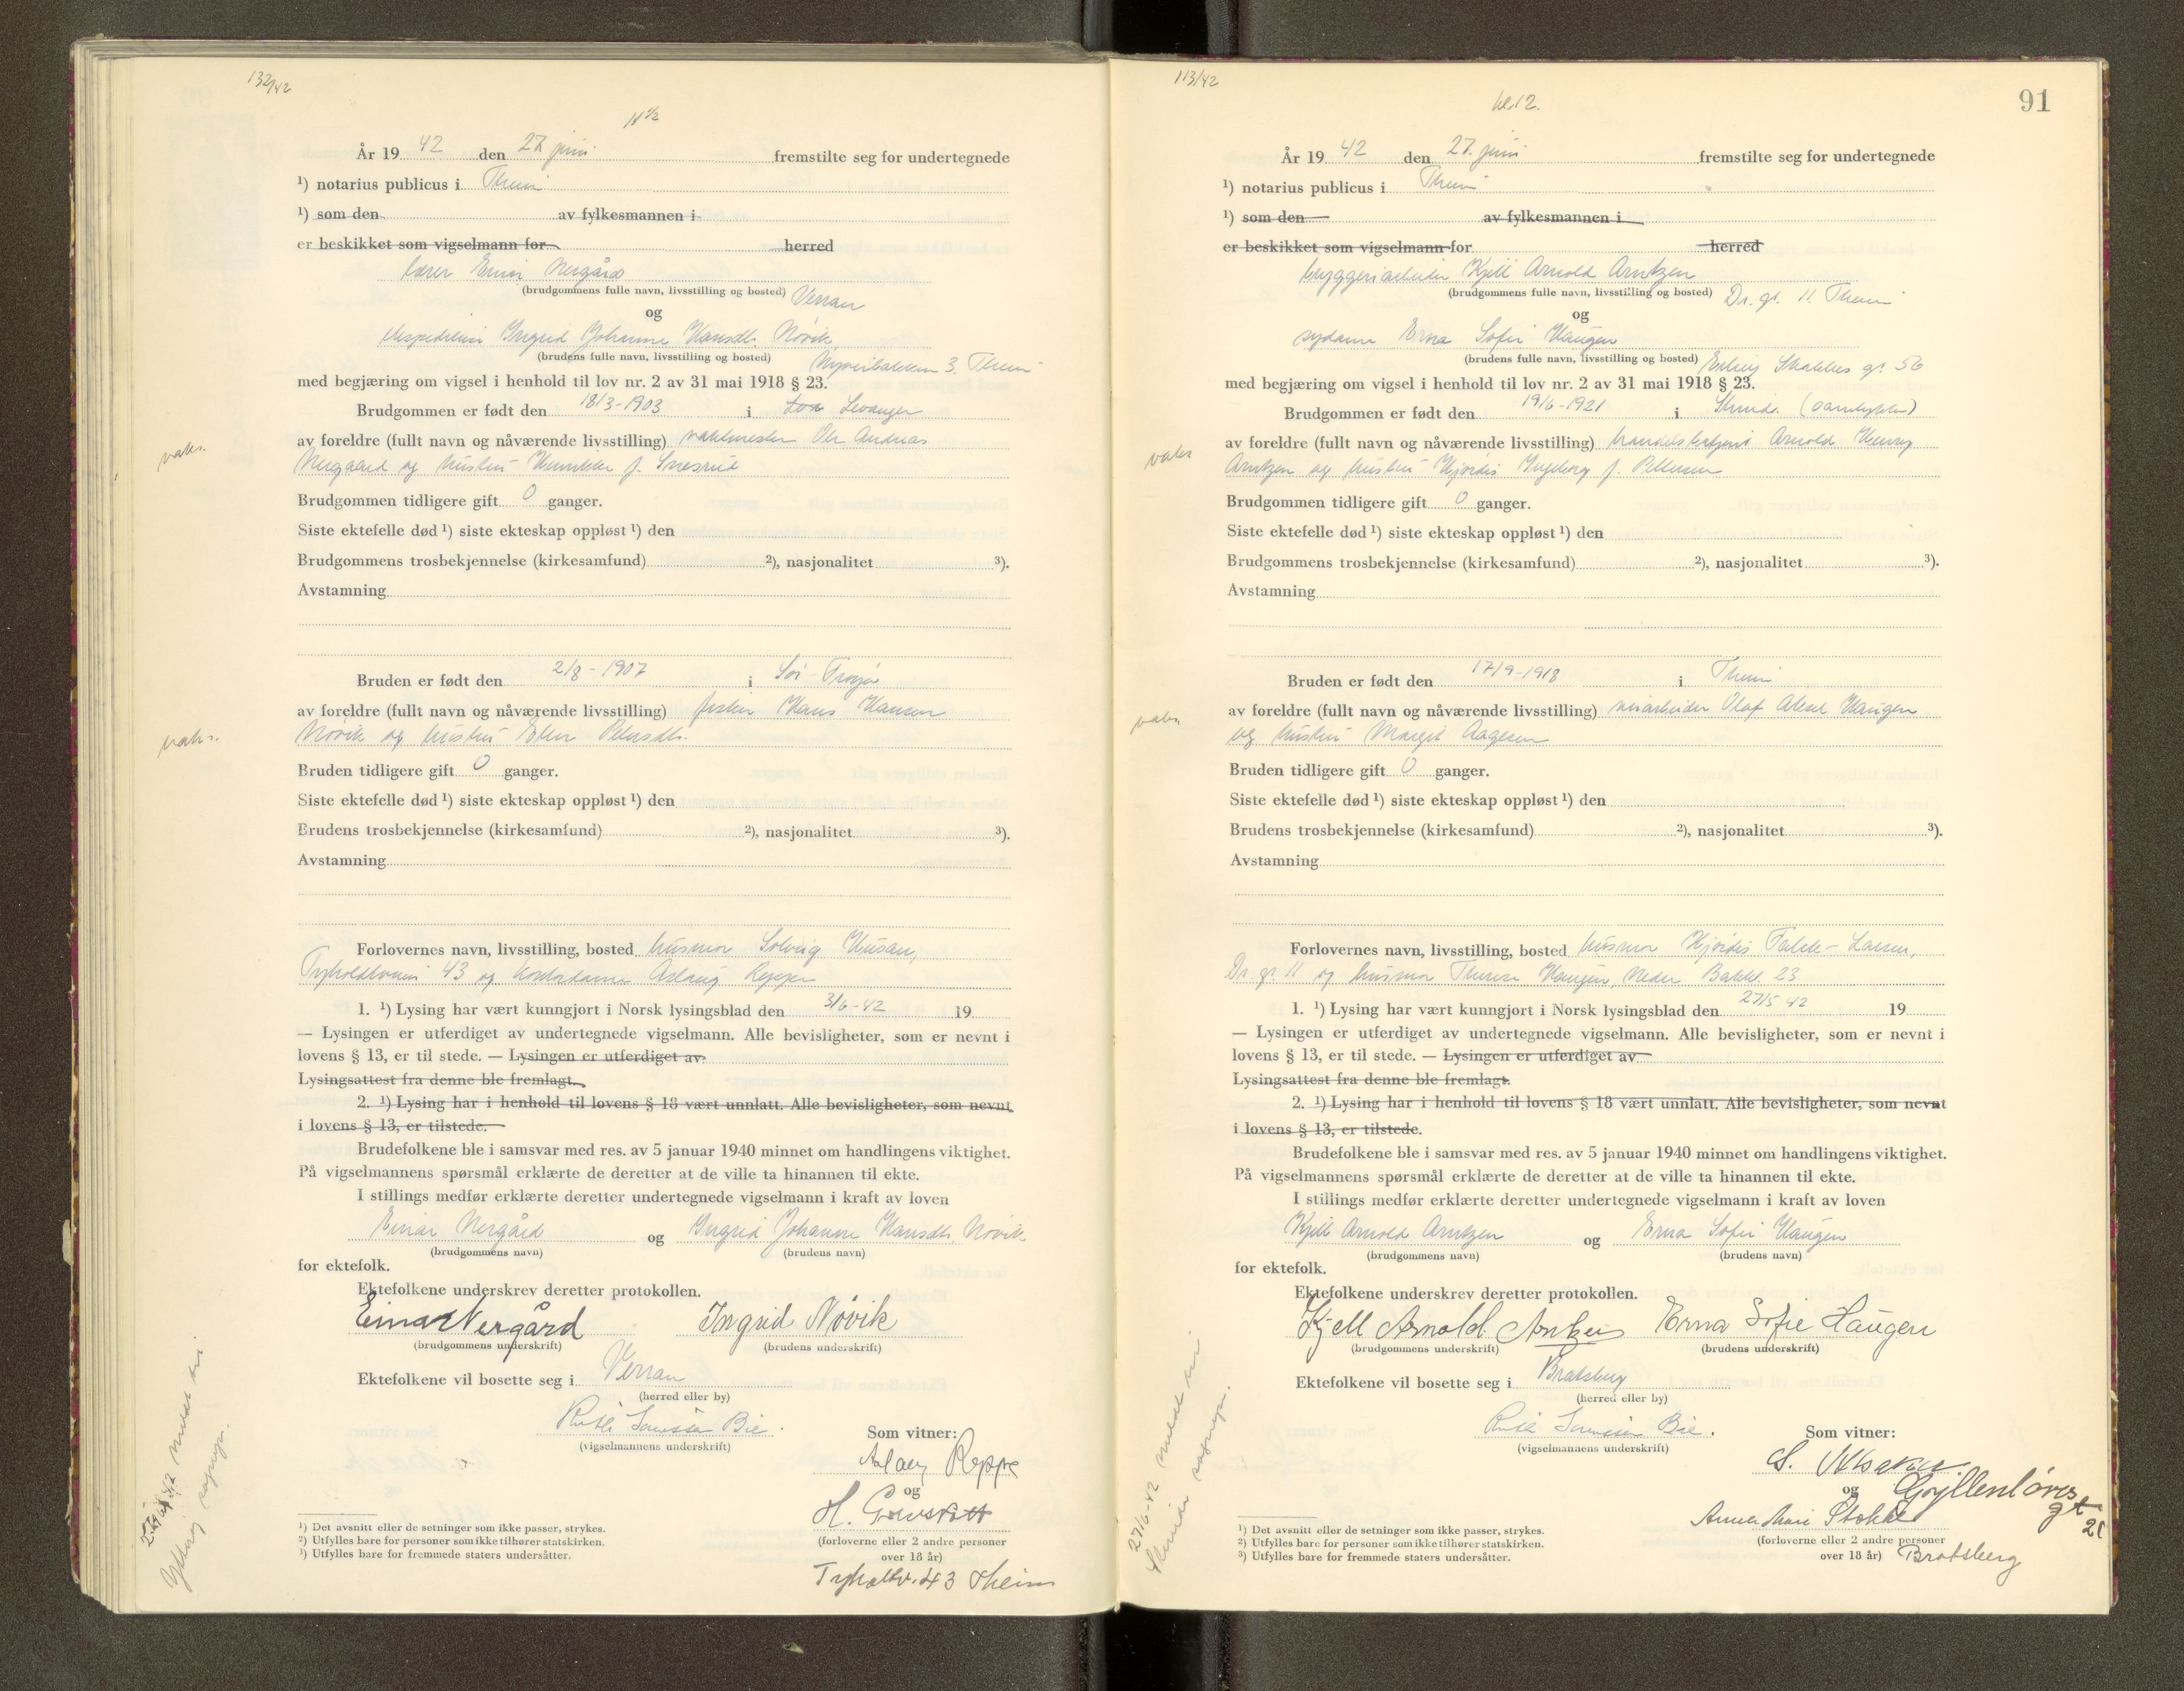 132/42
11 1/2
År 19 42 den 27 juni fremstilte seg for undertegnede
¹) notarius publicus i Thm
¹) som den av fylkesmannen i
er beskikket som vigselmann for herred
lærer Einar Nergård
(brudgommens fulle navn, livsstilling og bosted) Verran
og
ekspeditrise Ingrid Johanne Hansdt. Nøvik,
(brudens fulle navn, livsstilling og bosted) 3. Thm
med begjæring om vigsel i henhold til lov nr. 2 av 31 mai 1918 § 23.
Brudgommen er født den 18/3-1903 i Levanger
av foreldre (fullt navn og nåværende livsstilling) vaktmester Ole Andreas
vaks.
Nergaard og hustru f.
Brudgommen tidligere gift 0 ganger.
Siste ektefelle død ¹) siste ekteskap oppløst ¹) den
Brudgommens trosbekjennelse (kirkesamfund) ²), nasjonalitet ³).
Avstamning
Bruden er født den 2/8-1907 i Sør-Frøya
av foreldre (fullt navn og nåværende livsstilling) fisker Hans Hansen
vaks.
Nøvik og hustru Elen Petersdt.
Bruden tidligere gift 0 ganger.
Siste ektefelle død ¹) siste ekteskap oppløst ¹) den
Brudens trosbekjennelse (kirkesamfund) ²), nasjonalitet ³).
Avstamning
Forlovernes navn, livsstilling, bosted husmor Solveig Husan,
Tyholtveien 43 og kontordame Aslaug Reppe
1. ¹) Lysing har vært kunngjort i Norsk lysingsblad den 3/6-42 19
— Lysingen er utferdiget av undertegnede vigselmann. Alle bevisligheter, som er nevnt i
lovens § 13, er til stede. — Lysingen er utferdiget av
Lysingsattest fra denne ble fremlagt.
2. ¹) Lysing har i henhold til lovens § 18 vært unnlatt. Alle bevisligheter, som nevnt
i lovens § 13, er tilstede.
Brudefolkene ble i samsvar med res. av 5 januar 1940 minnet om handlingens viktighet.
På vigselmannens spørsmål erklærte de deretter at de ville ta hinannen til ekte.
I stillings medfør erklærte deretter undertegnede vigselmann i kraft av loven
Einar Nergård og Ingrid Johanne Hansdt. Nøvik
(brudgommens navn) (brudens navn)
for ektefolk.
Ektefolkene underskrev deretter protokollen.
Einar Nergård Ingrid Nøvik
(brudgommens underskrift) (brudens underskrift)
Ektefolkene vil bosette seg i Verran
(herred eller by)
Bie.
(vigselmannens underskrift)
Som vitner:
Aslaug Reppe
og
H.
(forloverne eller 2 andre personer
over 18 år)
Tyholtv. 43 Theim
¹) Det avsnitt eller de setninger som ikke passer, strykes.
²) Utfylles bare for personer som ikke tilhører statskirken.
³) Utfylles bare for fremmede staters undersåtter.
meldt til
Ytterøy sognepr.
113/42
kl. 12.
91
År 19 42 den 27. juni fremstilte seg for undertegnede
¹) notarius publicus i Thm
¹) som den av fylkesmannen i
er beskikket som vigselmann for herred
bryggeriarbeider Kjell Arnold Arntzen
(brudgommens fulle navn, livsstilling og bosted) Dr. gt. 11. Thm
og
sydame Erna Sofie Haugen
(brudens fulle navn, livsstilling og bosted) Erling Skakkes gt. 56
med begjæring om vigsel i henhold til lov nr. 2 av 31 mai 1918 § 23.
Brudgommen er født den 19/6-1921 i Strinda (samtykke)
av foreldre (fullt navn og nåværende livsstilling) Arnold Henry
vaks
Arntzen og hustru Hjørdis Ingeborg f. Pettersen
Brudgommen tidligere gift 0 ganger.
Siste ektefelle død ¹) siste ekteskap oppløst ¹) den
Brudgommens trosbekjennelse (kirkesamfund) ²), nasjonalitet ³).
Avstamning
Bruden er født den 17/9-1918 i Thm
av foreldre (fullt navn og nåværende livsstilling) Olaf Aksel Haugen
vaks
og hustru Margit Aagesen
Bruden tidligere gift 0 ganger.
Siste ektefelle død ¹) siste ekteskap oppløst ¹) den
Brudens trosbekjennelse (kirkesamfund) ²), nasjonalitet ³).
Avstamning
Forlovernes navn, livsstilling, bosted husmor Hjørdis Falck-Larsen,
Dr. gt 11 og husmor Therese Haugen, Nedre Bakkl. 23
1. ¹) Lysing har vært kunngjort i Norsk lysingsblad den 27/5 42 19
— Lysingen er utferdiget av undertegnede vigselmann. Alle bevisligheter, som er nevnt i
lovens § 13, er til stede. — Lysingen er utferdiget av
Lysingsattest fra denne ble fremlagt.
2. ¹) Lysing har i henhold til lovens § 18 vært unnlatt. Alle bevisligheter, som nevnt
i lovens § 13, er tilstede.
Brudefolkene ble i samsvar med res. av 5 januar 1940 minnet om handlingens viktighet.
På vigselmannens spørsmål erklærte de deretter at de ville ta hinannen til ekte.
I stillings medfør erklærte deretter undertegnede vigselmann i kraft av loven
Kjell Arnold Arntzen og Erna Sofie Haugen
(brudgommens navn) (brudens navn)
for ektefolk.
Ektefolkene underskrev deretter protokollen.
Kjell Arnold Arntzen Erna Sofie Haugen
(brudgommens underskrift) (brudens underskrift)
Ektefolkene vil bosette seg i Bratsberg
(herred eller by)
Bie.
(vigselmannens underskrift)
Som vitner:
S.
og Gyllenløves gt 21
Anna Marie
(forloverne eller 2 andre personer
over 18 år) Bratsberg
¹) Det avsnitt eller de setninger som ikke passer, strykes.
²) Utfylles bare for personer som ikke tilhører statskirken.
³) Utfylles bare for fremmede staters undersåtter.
27/6-42 meldt til
Strinda sognepr.